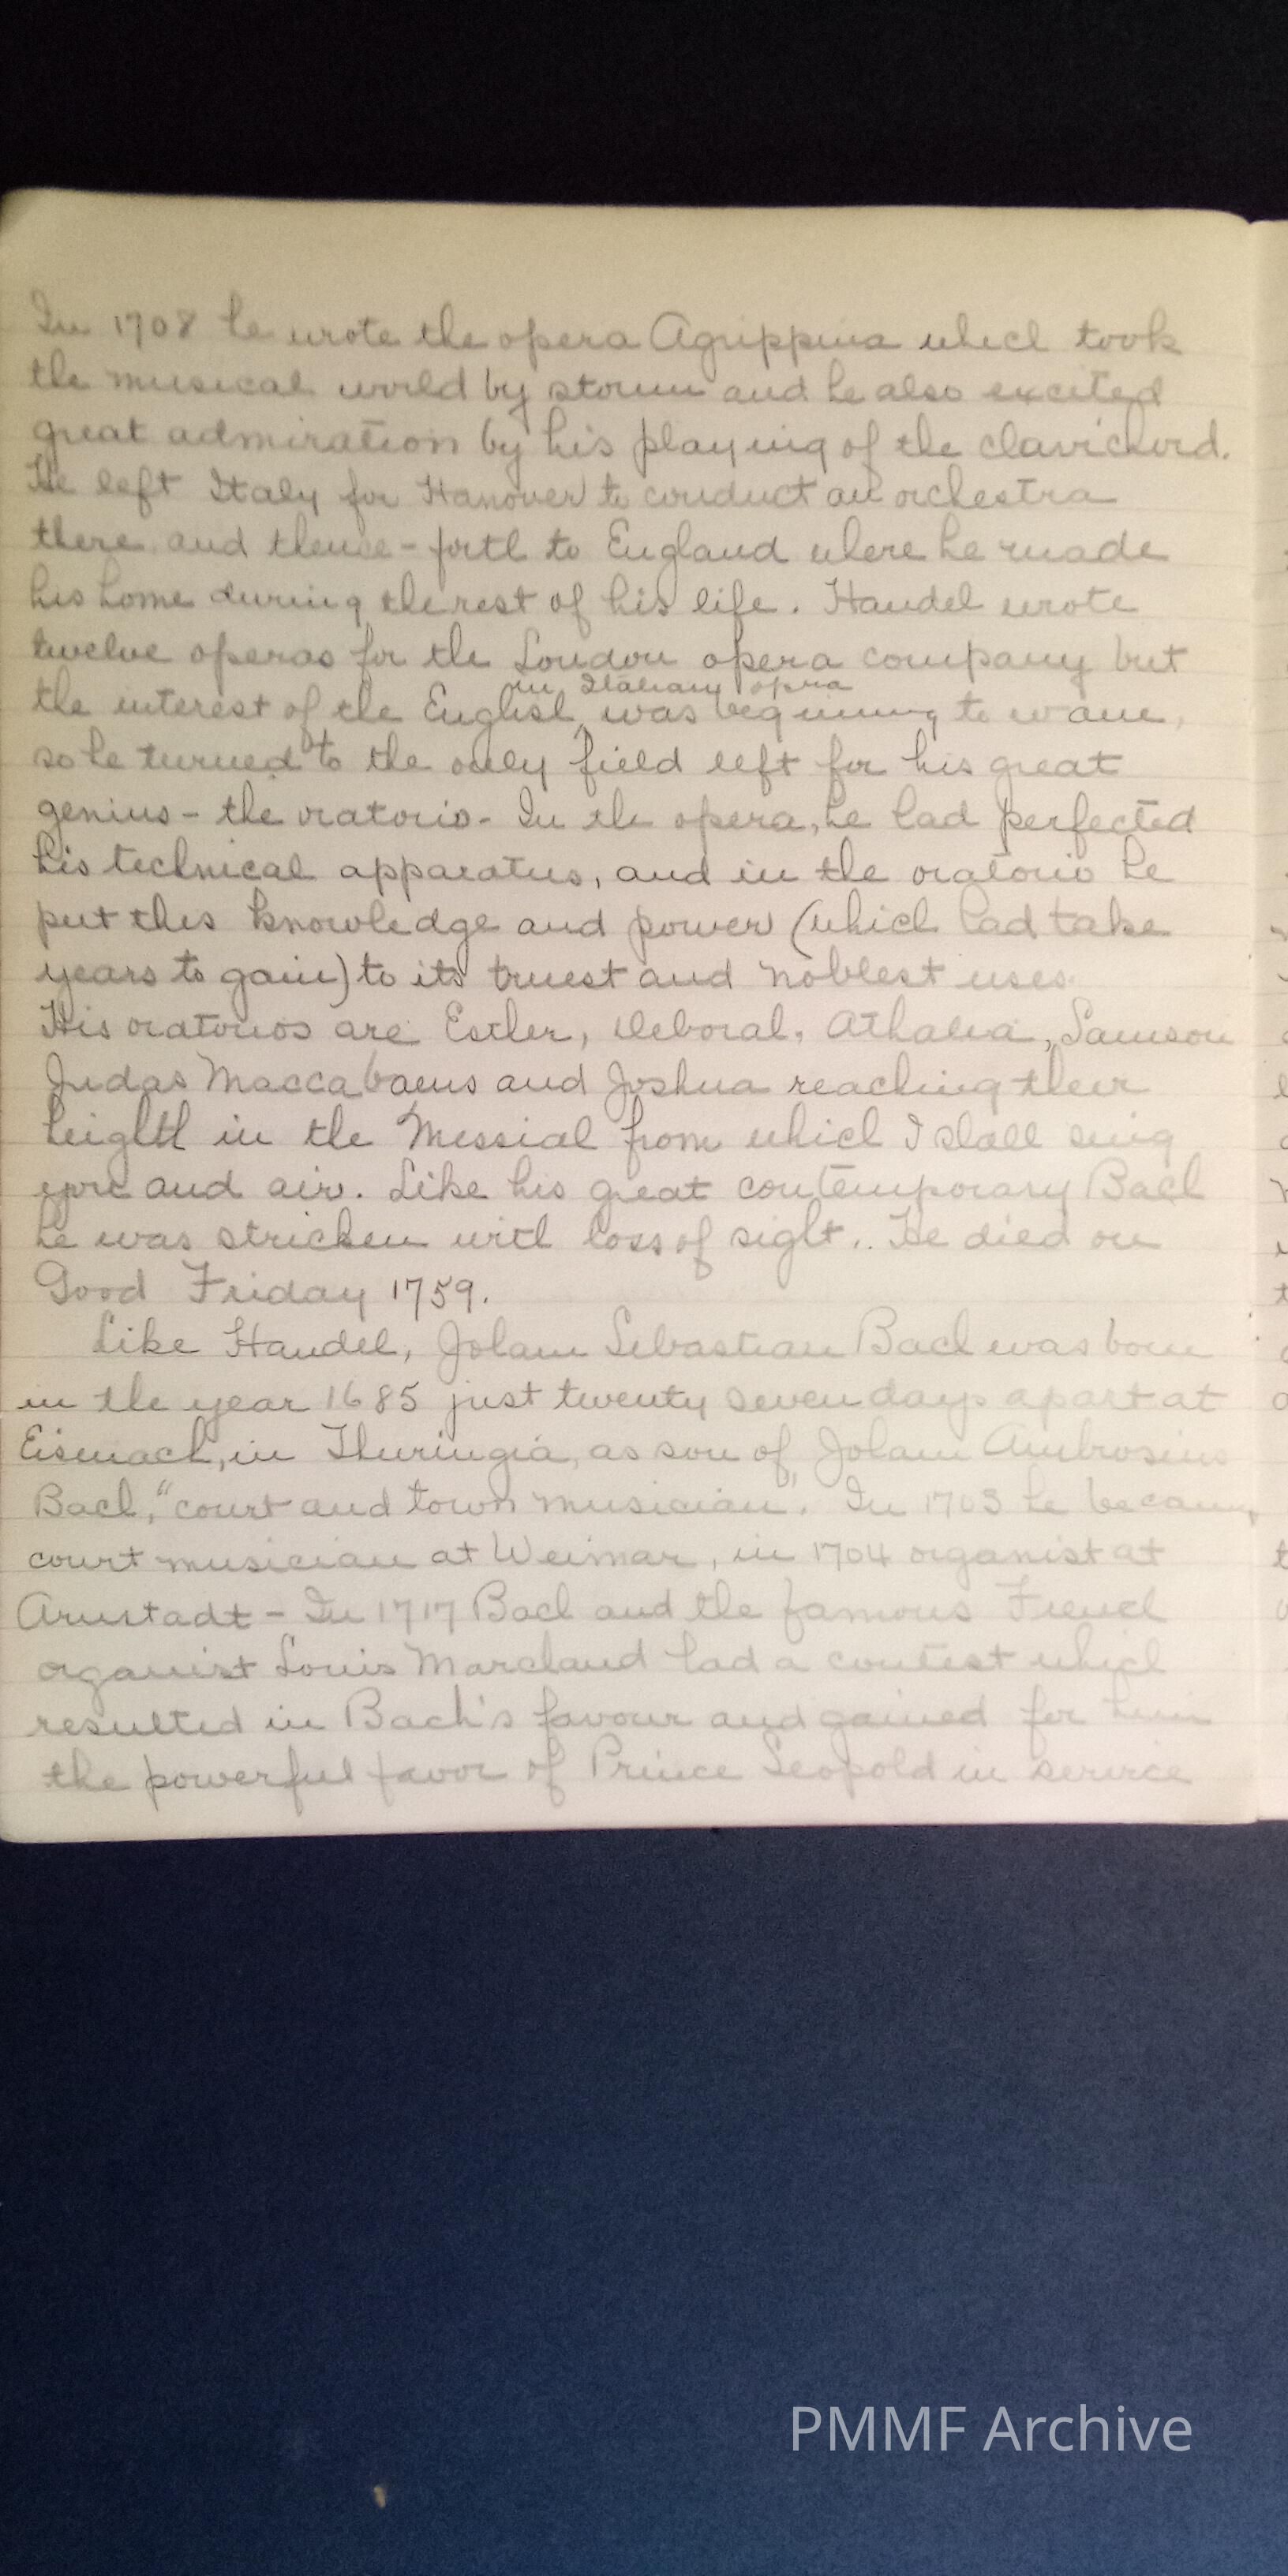 In 1708 he wrote the opera Agrippina which took
the musical world by storm and he also excited
great admiration by his playing of the clavichord.
He left Italy for Hanover to conduct an orchestra
there and thence-forth to England where he made
his home during the rest of his life. Handel wrote
twelve operas for the London opera company but
in Italian opera
the interest of the English was beginning to wane,
so he turned to the only field left for his great
genius - the oratorio - In the opera, he had perfected
his technical apparatus, and in the oratorio he
put this knowledge and power (which had take
years to gain) to its truest and noblest uses.
His oratorios are Esther, Deborah, Athalia, Samson
Judas Maccabaeus and Joshua reaching their
height in the Messiah from which I shall sing
and air. Like his great contemporary Bach
he was stricken with loss of sight.. He died on
Good Friday 1759.
Like Handel, Johann Sebastian Bach was born
in the year 1685 just twenty seven days apart at
Eisenach, in Thuringia, as son of Johann Ambrosius
Bach, "court and town musician". In 1703 he became
court musician at Weimar, in 1704 organist at
Arnstadt - In 1717 Bach and the famous French
organist Louis Marchand had a contest which
resulted in Bach's favour and gained for him
the powerful favor of Prince Leopold in service
PMMF Archive